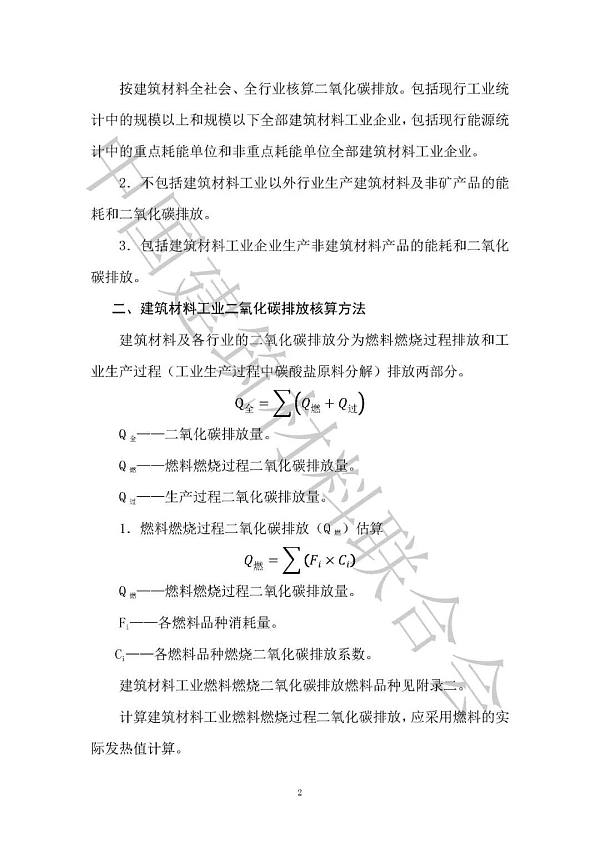 按建筑材料全社会、全行业核算二氧化碳排放。包括现行工业统
计中的规模以上和规模以下全部建筑材料工业企业，包括现行能源统
计中的重点耗能单位和非重点耗能单位全部建筑材料工业企业。
2．不包括建筑材料工业以外行业生产建筑材料及非矿产品的能
耗和二氧化碳排放。
3．包括建筑材料工业企业生产非建筑材料产品的能耗和二氧化
碳排放。
二、建筑材料工业二氧化碳排放核算方法
建筑材料及各行业的二氧化碳排放分为燃料燃烧过程排放和工
业生产过程（工业生产过程中碳酸盐原料分解）排放两部分。
Q全=∑(Q燃+Q过)
Q全——二氧化碳排放量。
Q燃——燃料燃烧过程二氧化碳排放量。
Q过——生产过程二氧化碳排放量。
1．燃料燃烧过程二氧化碳排放（Q燃）估算
Q燃=∑(Fi×Ci)
Q燃——燃料燃烧过程二氧化碳排放量。
Fi——各燃料品种消耗量。
Ci——各燃料品种燃烧二氧化碳排放系数。
建筑材料工业燃料燃烧二氧化碳排放燃料品种见附录二。
计算建筑材料工业燃料燃烧过程二氧化碳排放，应采用燃料的实
际发热值计算。
2
中国建筑材料联合会